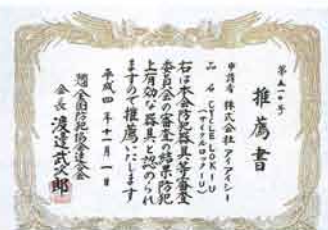 推薦書
申請者 株式会社アイアイシー
品名 CYCLE LOK-U
(サイクルロック-U)
右は本会防犯器具等審査
委員会の審査の結果防犯
上有効な器具と認められ
ますので推薦いたします
平成四年十一月一日
全国防犯協会連合会
会長 渡邊武次郎